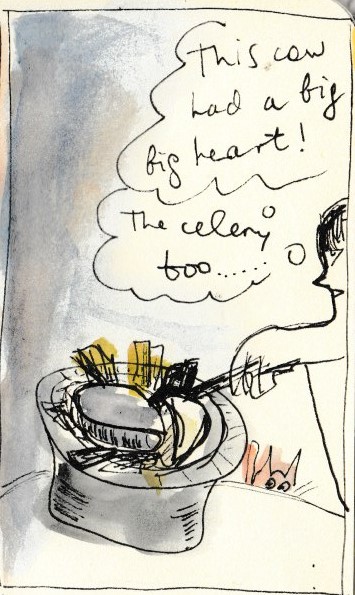 This cow
had a big
big heart!
The celery
too......